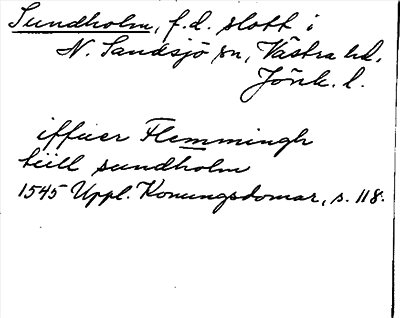 Sundholm, f.d. slott i
N. Sandsjö sn, Västra hd.
Jönk. l.
iffuer Flemmingh
tiill sundholm
1545 Uppl. Konungsdomar, s. 118.